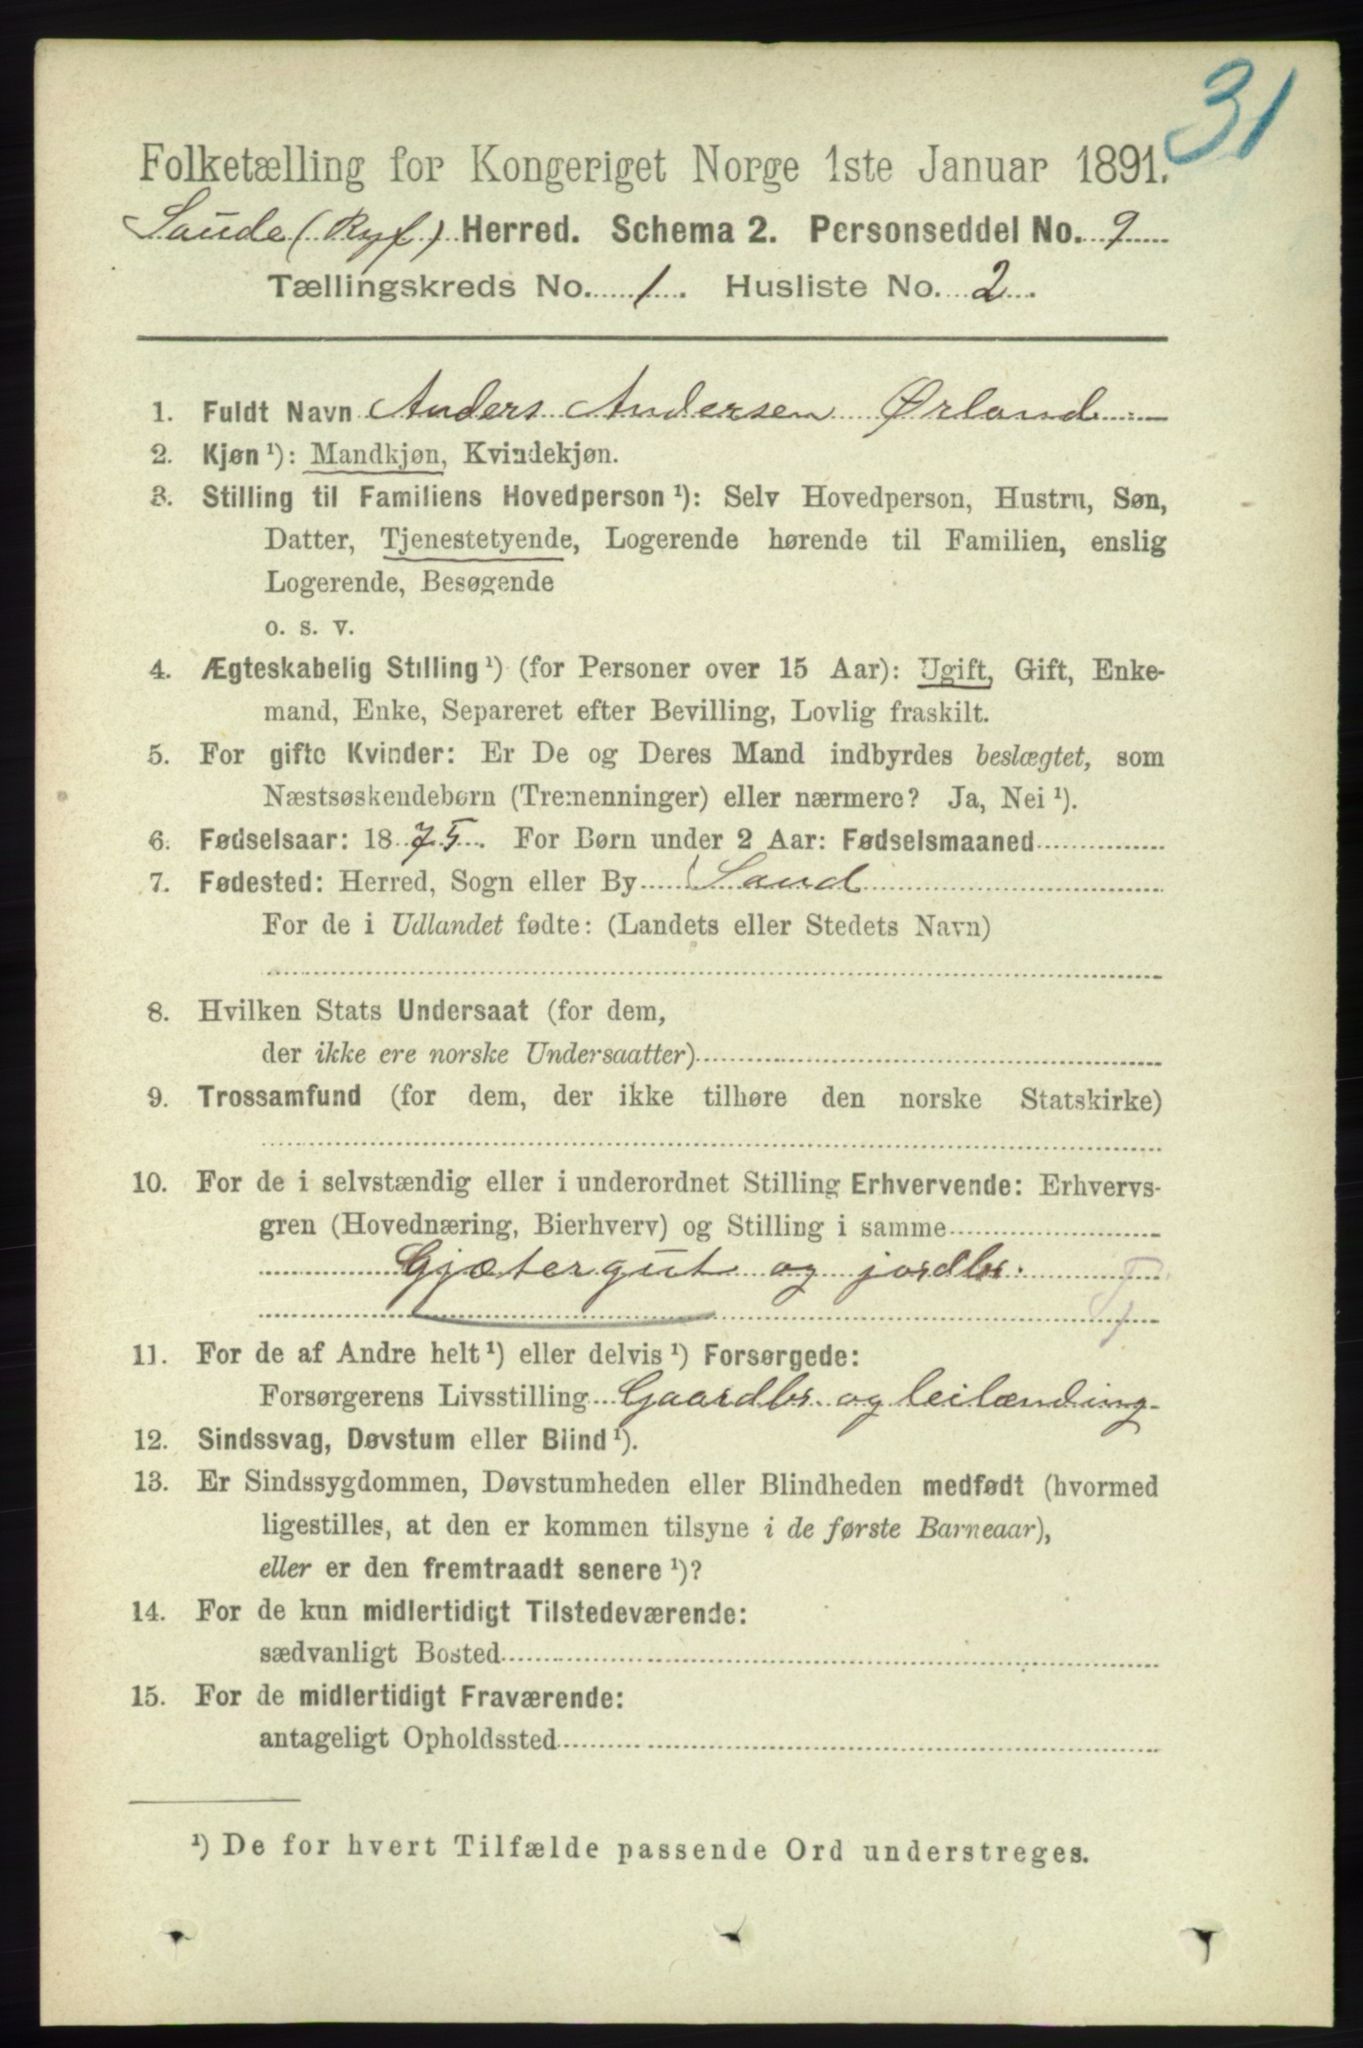 31
Folketælling for Kongeriget Norge 1ste Januar 1891.
Saude (Ryf) Herred. Schema 2. Personseddel No. 9
Tællingskreds No. 1. Husliste No. 2.
1. Fuldt Navn Anders Andersen Ørland
2. Kjøn ¹): Mandkjøn, Kvindekjøn.
3. Stilling til Familiens Hovedperson ¹): Selv Hovedperson, Hustru, Søn,
Datter, Tjenestetyende, Logerende hørende til Familien, enslig
Logerende, Besøgende
o. s. v.
4. Ægteskabelig Stilling ¹) (for Personer over 15 Aar): Ugift, Gift, Enke-
mand, Enke, Separeret efter Bevilling, Lovlig fraskilt.
5. For gifte Kvinder: Er De og Deres Mand indbyrdes beslægtet, som
Næstsøskendebørn (Tremenninger) eller nærmere? Ja, Nei ¹).
6. Fødselsaar: 1875. For Børn under 2 Aar: Fødselsmaaned
7. Fødested: Herred, Sogn eller By Sand
For de i Udlandet fødte: (Landets eller Stedets Navn)
8. Hvilken Stats Undersaat (for dem,
der ikke ere norske Undersaatter)
9. Trossamfund (for dem, der ikke tilhøre den norske Statskirke)
10. For de i selvstændig eller i underordnet Stilling Erhvervende: Erhvervs-
gren (Hovednæring, Bierhverv) og Stilling i samme
Gjætergut og jordbr.
11. For de af Andre helt ¹) eller delvis ¹) Forsørgede:
Forsørgerens Livsstilling Gaardbr. og leilænding
12. Sindssvag, Døvstum eller Blind ¹).
13. Er Sindssygdommen, Døvstumheden eller Blindheden medfødt (hvormed
ligestilles, at den er kommen tilsyne i de første Barneaar),
eller er den fremtraadt senere ¹)?
14. For de kun midlertidigt Tilstedeværende:
sædvanligt Bosted
15. For de midlertidigt Fraværende:
antageligt Opholdssted
¹) De for hvert Tilfælde passende Ord understreges.